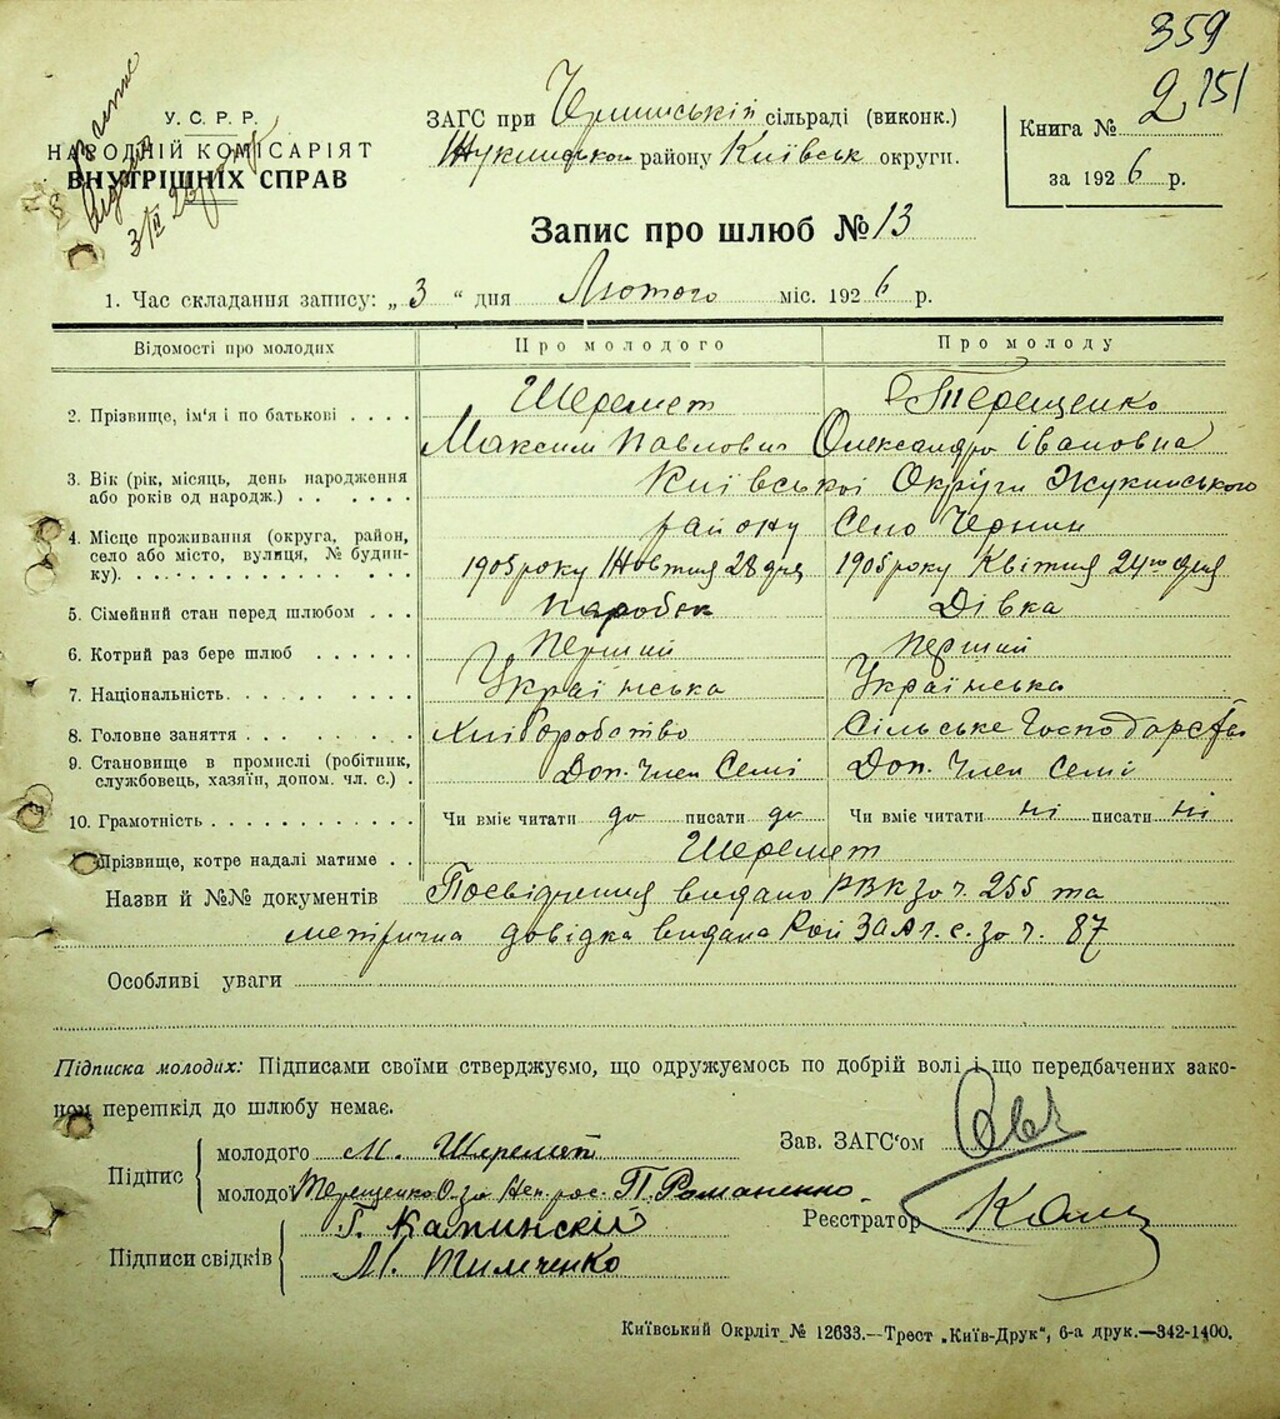 359
2 151
У. С. Р. Р.
НАРОДНІЙ КОМІСАРІЯТ
ВНУТРІШНІХ СПРАВ
3/II 26
ЗАГС при Чернинській сільраді (виконк.)
Жукинського району Київськ округи.
Книга №
за 1926 р.
Запис про шлюб № 13
1. Час складання запису: „ 3 “ дня Лютого міс. 1926 р.
Відомості про молодих
Про молодого
Про молоду
2. Прізвище, ім'я і по батькові . . . .
Шеремет
Терещенко
Максим Павлович
Олександра Івановна
3. Вік (рік, місяць, день народження
або років од народж.) . . . . . .
Київської Округи Жукинського
4. Місце проживання (округа, район,
село або місто, вулиця, № будин-
ку). . . . . . . . . . . . . . .
району Село Чернин
1905 року Жовтня 28 дня
1905 року Квітня 24го дня
5. Сімейний стан перед шлюбом . . .
паробок
Дівка
6. Котрий раз бере шлюб . . . . . .
перший
перший
7. Національність. . . . . . . . . .
Українська
Українська
8. Головне заняття . . . . . . . . .
Хліборобство
Сільське Господарство
9. Становище в промислі (робітник,
службовець, хазяїн, допом. чл. с.) .
Доп. Член Семі
Доп. Член Семі
10. Грамотність . . . . . . . . . . .
Чи вміє читати да писати да
Чи вміє читати ні писати ні
Прізвище, котре надалі матиме . .
Шеремет
Назви й №№ документів Посвідчення видано РВК за ч. 255 та
метрична довідка видана Рай ЗАГ. с. за ч. 87
Особливі уваги
Підписка молодих: Підписами своїми стверджуємо, що одружуємось по добрій волі і що передбачених зако-
ном перешкід до шлюбу немає.
Підпис
молодого М. Шеремет
молодої Терещенко О. за неп. рос. П. Романенко
Зав. ЗАГС'ом
Реєстратор
Підписи свідків
Г. Калинскій
М. Тимченко
Київський Окрліт № 12633.—Трест „Київ-Друк“, 6-а друк.—342-1400.